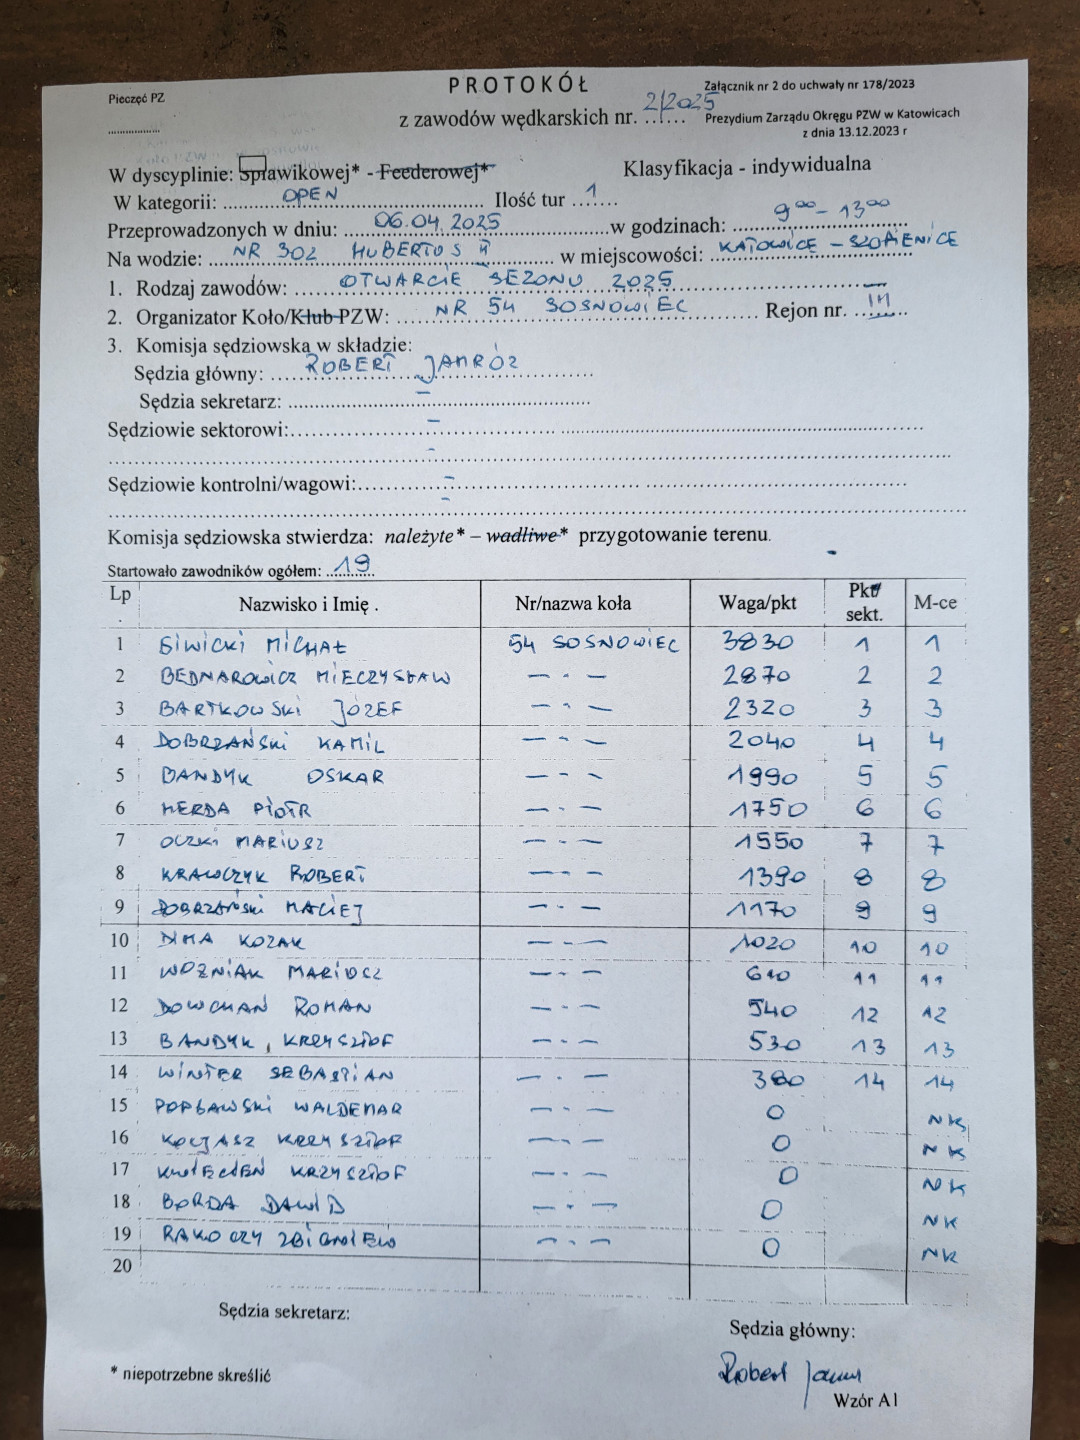 Pieczęć PZ
PROTOKÓŁ
Załącznik nr 2 do uchwały nr 178/2023
z zawodów wędkarskich nr. 2/2025
Prezydium Zarządu Okręgu PZW w Katowicach
z dnia 13.12.2023 r
W dyscyplinie: Spławikowej* - Feederowej*
Klasyfikacja - indywidualna
W kategorii: OPEN Ilość tur 1
Przeprowadzonych w dniu: 06.04.2025 w godzinach: 9 00 - 13 00
Na wodzie: NR 302 HUBERTUS II w miejscowości: KATOWICE - SZOPIENICE
1. Rodzaj zawodów: OTWARCIE SEZONU 2025
2. Organizator Koło/Klub PZW: NR 54 SOSNOWIEC Rejon nr. III
3. Komisja sędziowska w składzie:
Sędzia główny: ROBERT JAMRÓZ
Sędzia sekretarz: -
Sędziowie sektorowi: -
-
Sędziowie kontrolni/wagowi: -
-
Komisja sędziowska stwierdza: należyte* – wadliwe* przygotowanie terenu.
Startowało zawodników ogółem: 19
Lp. Nazwisko i Imię . Nr/nazwa koła Waga/pkt Pkt/ sekt. M-ce
1 SIWICKI MICHAŁ 54 SOSNOWIEC 3830 1 1
2 BEDNAROWICZ MIECZYSŁAW — " — 2870 2 2
3 BARTKOWSKI JÓZEF — " — 2320 3 3
4 DOBRZAŃSKI KAMIL — " — 2040 4 4
5 BANDYK OSKAR — " — 1990 5 5
6 HERDA PIOTR — " — 1750 6 6
7 OCZKI MARIUSZ — " — 1550 7 7
8 KRAWCZYK ROBERT — " — 1390 8 8
9 DOBRZAŃSKI MACIEJ — " — 1170 9 9
10 DIMA KOZAK — " — 1020 10 10
11 WOŹNIAK MARIUSZ — " — 610 11 11
12 DOWCHAŃ ROMAN — " — 540 12 12
13 BANDYK KRZYSZTOF — " — 530 13 13
14 WINTER SEBASTIAN — " — 380 14 14
15 POPŁAWSKI WALDEMAR — " — 0 NK
16 KRZYSZTOF — " — 0 NK
17 KWIECIEŃ KRZYSZTOF — " — 0 NK
18 BORDA DAWID — " — 0 NK
19 RAKOCZY ZBIGNIEW — " — 0 NK
20
Sędzia sekretarz:
Sędzia główny:
* niepotrzebne skreślić
Robert
Wzór A1